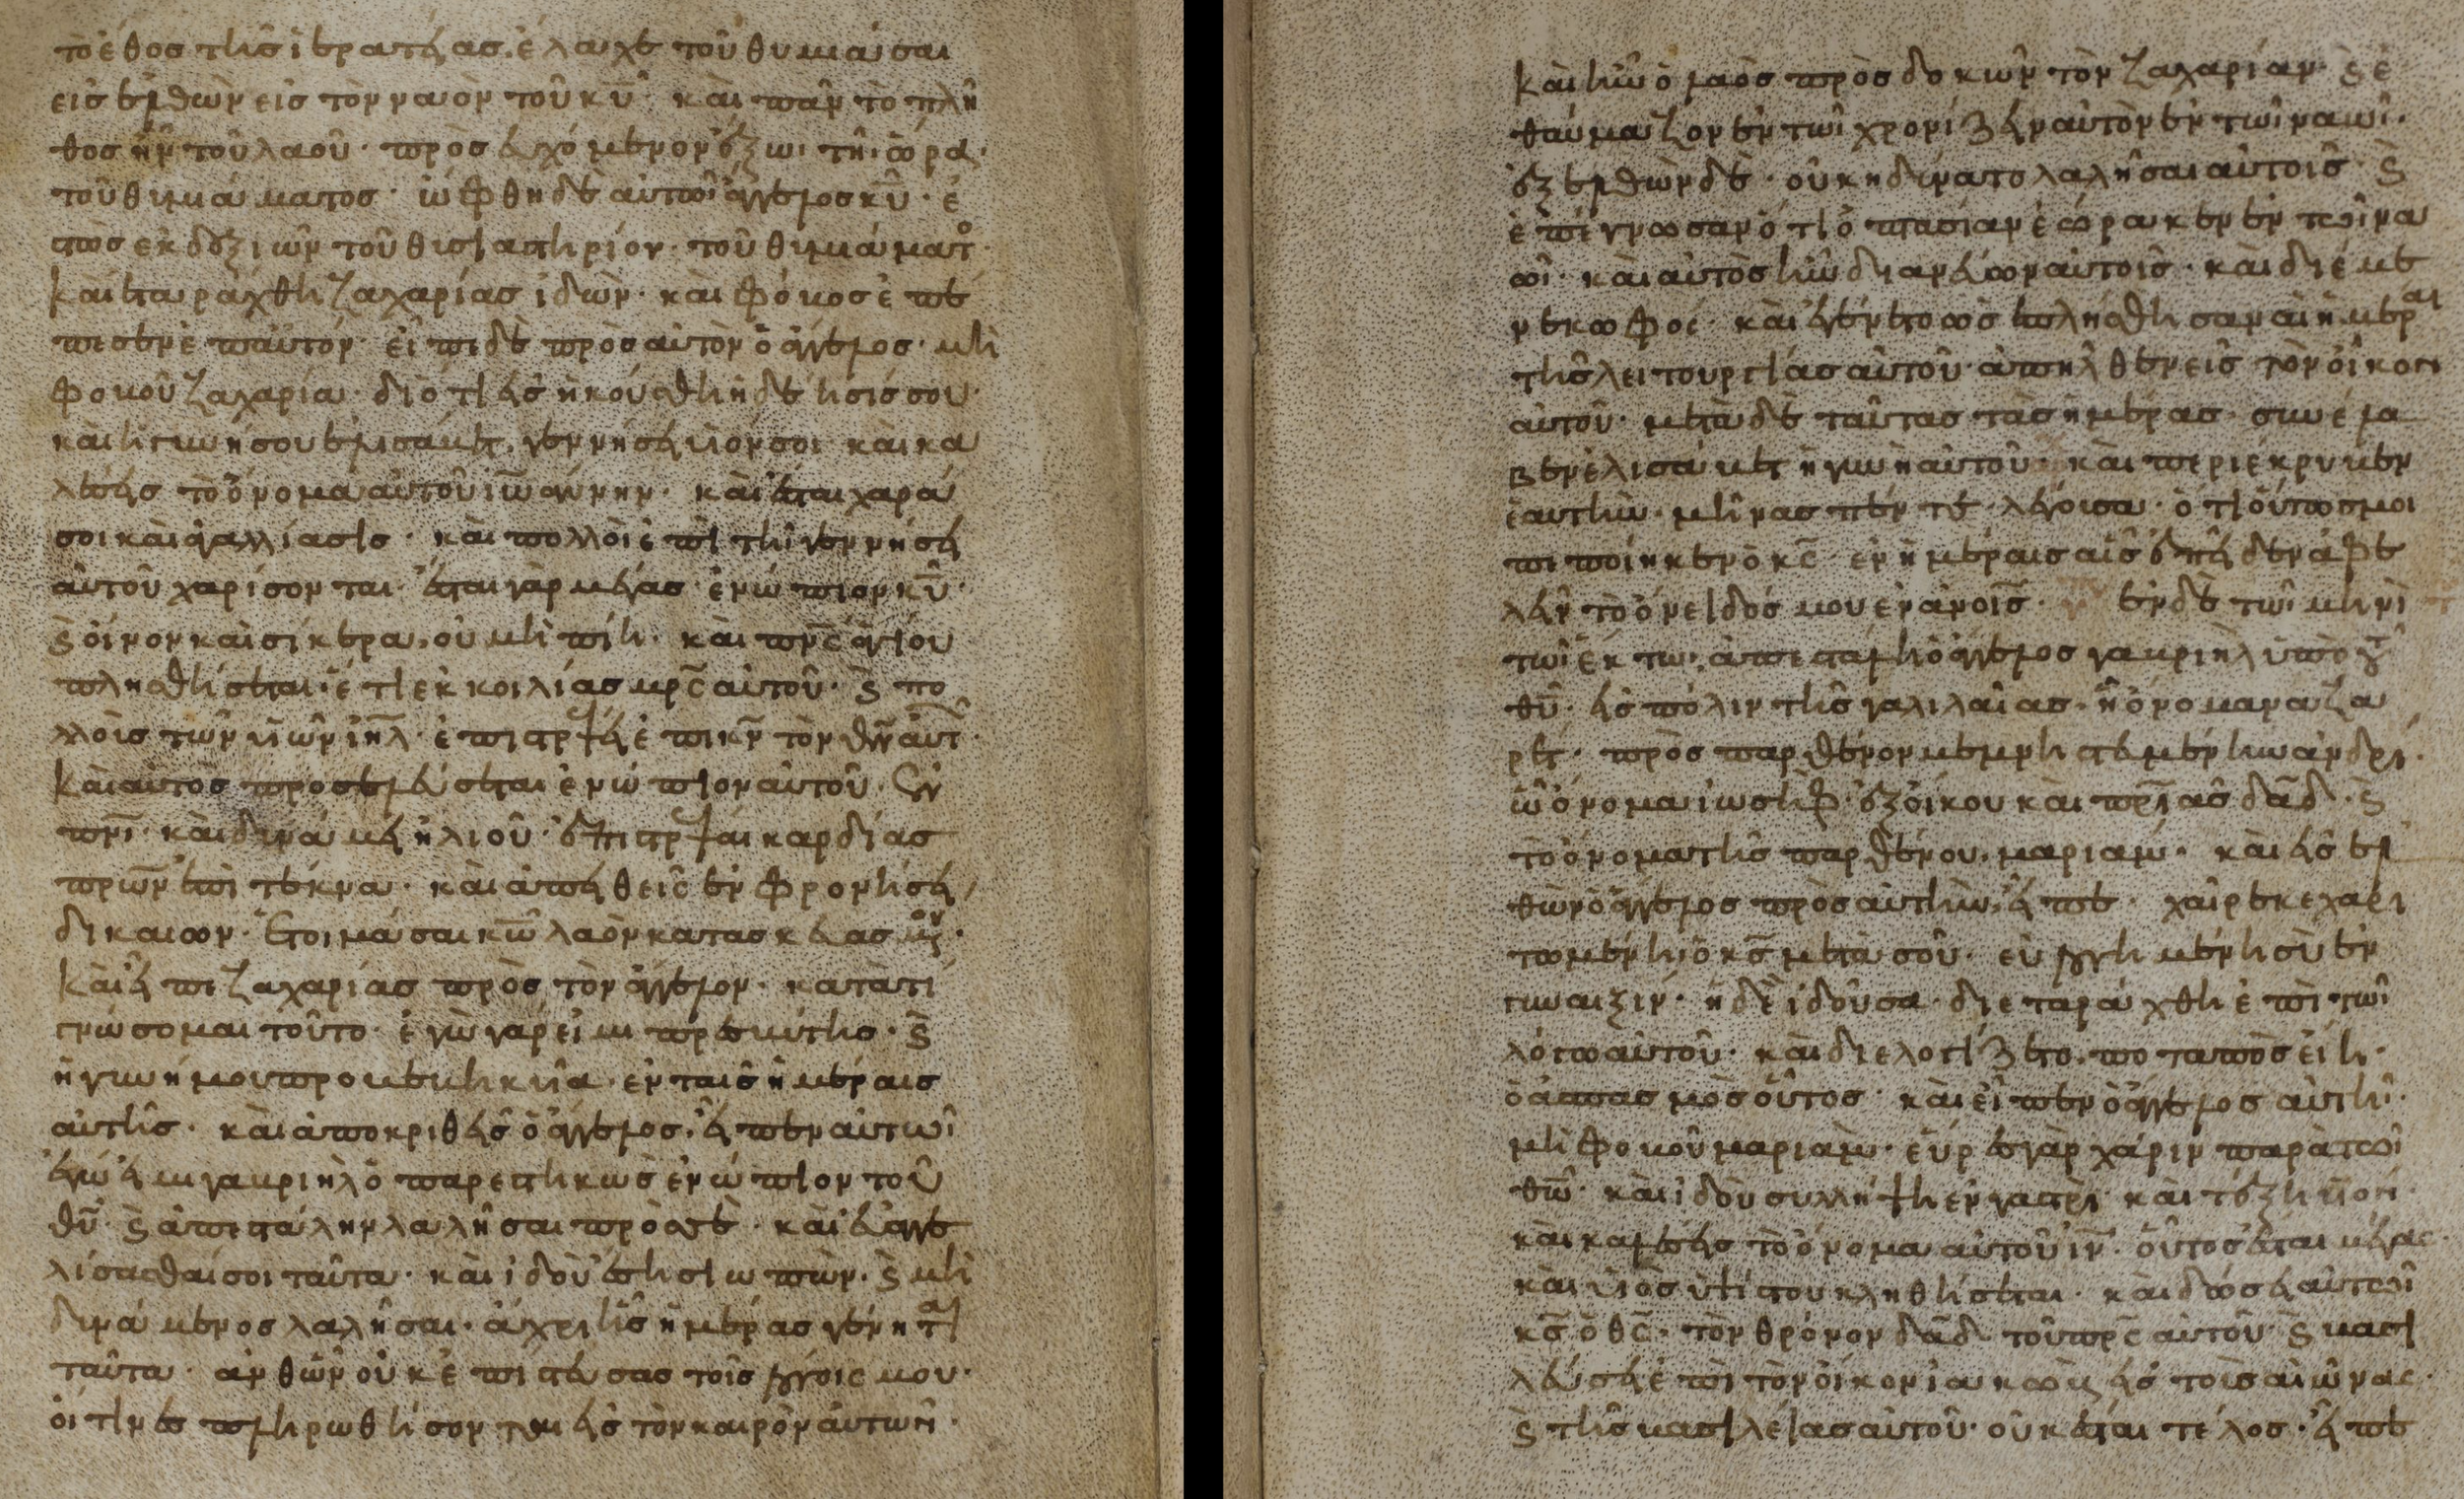 τὸ ἔθος τῆς ἱερατείας, ἔλαχε τοῦ θυμιάσαι
εἰσελθὼν εἰς τὸν ναὸν τοῦ κ̅υ̅· καὶ πᾶν τὸ πλῆ
θος ἦν τοῦ λαοῦ· προσευχόμενον ἔξω· τῆι ὥρα·
τοῦ θυμιάματος· ὤφθη δὲ αὐτῶι ἄγγελος κ̅υ̅· ἑ
στὼς ἐκ δεξιῶν τοῦ θυσιαστηρίου· τοῦ θυμιάματ(ος)·
καὶ ἐταράχθη ζαχαρίας ἰδὼν· καὶ φόβος ἐπέ
πεσεν ἐπ' αὐτόν· εἶπε δὲ πρὸς αὐτὸν ὁ ἄγγελος· μὴ
φοβοῦ ζαχαρία· διότι εἰσηκούσθη ἡ δέησίς σου·
καὶ ἡ γυνή σου ἐλισάβετ, γεννήσει υἱόν σοι· καὶ κα
λέσεις τὸ ὄνομα αὐτοῦ ἰωάννην· καὶ ἔσται χαρά
σοι καὶ ἀγαλλίασις· καὶ πολλοὶ ἐπὶ τῆ γεννήσει
αὐτοῦ χαρίσονται· ἔσται γὰρ μέγας ἐνώπιον κ̅υ̅·
ϗ οἶνον καὶ σίκερα, οὐ μὴ πίη· καὶ π̅ν̅ς̅ ἁγίου
πλησθήσεται· ἔτι ἐκ κοιλίας μ̅ρ̅ς̅ αὐτοῦ· ϗ πο
λλοὺς τῶν υἱῶν ι̅η̅λ̅· ἐπιστρέψει ἐπὶ κ̅ν̅ τὸν θ̅ν̅ αὐτ(ῶν)·
καὶ αὐτὸς προσελεύσεται ἐνώπιον αὐτοῦ, ἐν
π̅ν̅ι̅· καὶ δυνάμει ἠλιοῦ· ἐπιστρέψαι καρδίας
π̅ρ̅ω̅ν̅ ἐπὶ τέκνα· καὶ ἀπειθεῖς ἐν φρονήσει
δικαίων· ἑτοιμάσαι κ̅ω̅ λαὸν κατασκευασμ(έν)ον·
καὶ εἶπε ζαχαρίας πρὸς τὸν ἄγγελον· κατὰ τί
γνώσομαι τοῦτο· ἐγὼ γάρ εἰμι πρεσβύτης· ϗ
ἡ γυνή μου προβεβηκυῖα· ἐν ταῖς ἡμέραις
αὐτῆς· καὶ ἀποκριθεὶς ὁ ἄγγελος, εἶπεν αὐτῶι
ἐγώ εἰμι γαβριὴλ ὁ παρεστηκὼς ἐνώπιον τοῦ
θ̅υ̅· ϗ ἀπεστάλην λαλῆσαι πρὸς σὲ· καὶ εὐαγγε
λίσασθαί σοι ταῦτα· καὶ ἰδοὺ ἔση σιωπῶν· ϗ μὴ
δυνάμενος λαλῆσαι· ἄχρι ἧς ἡμέρας γένηται
ταῦτα· ἀνθ' ὧν οὐκ ἐπίστευσας τοῖς λόγοις μου·
οἵτινες πληρωθήσονται εἰς τὸν καιρὸν αὐτῶν·
καὶ ἦν ὁ λαὸς προσδοκῶν τὸν ζαχαρίαν· ϗ ἐ
θαύμαζον ἐν τῶι χρονίζειν αὐτὸν ἐν τῶι ναῶι·
ἐξελθὼν δὲ· οὐκ ἠδύνατο λαλῆσαι αὐτοῖς· ϗ
ἐπέγνωσαν ὅτι ὀπτασίαν ἑώρακεν ἐν τῶι να
ῶι· καὶ αὐτὸς ἦν διανεύων αὐτοῖς· καὶ διέμε
νε κωφός· καὶ ἐγένετο ὡς ἐπλήσθησαν αἱ ἡμέραι
τῆς λειτουργίας αὐτοῦ· ἀπῆλθεν εἰς τὸν οἶκον
αὐτοῦ· μετὰ δὲ ταύτας τὰς ἡμέρας· συνέλα
βεν ἐλισάβετ ἡ γυνὴ αὐτοῦ· καὶ περιέκρυβεν
ἑαυτὴν· μῆνας πέντε· λέγουσα· ὅτι οὕτως μοι
πεποίηκεν ὁ κ̅ς̅· ἐν ἡμέραις αἷς ἐπεῖδεν ἀφε
λεῖν τὸ ὄνειδός μου ἐν ἀνοις· ἐν δὲ τῶι μηνὶ
τῶι ἕκτωι, ἀπεστάλη ὁ ἄγγελος γαβριὴλ ὑπὸ τ(οῦ)
θ̅υ̅· εἰς πόλιν τῆς γαλιλαίας· ἧ ὄνομα ναζα
ρέτ· πρὸς παρθένον μεμνηστευμένην ἀνδρί·
ὧ ὄνομα ἰωσὴφ· ἐξ οἴκου καὶ π̅ρ̅ιᾶς δ̅α̅δ̅· ϗ
τὸ ὄνομα τῆς παρθένου, μαριάμ· καὶ εἰσελ
θὼν ὁ ἄγγελος πρὸς αὐτὴν, εἶπε· χαῖρε κεχαρι
τωμένη, ὁ κ̅ς̅ μετὰ σοῦ· εὐλογημένη σὺ ἐν
γυναιξίν· ἡ δὲ ἰδοῦσα· διεταράχθη ἐπὶ τῶι
λόγω αὐτοῦ· καὶ διελογίζετο, ποταπὸς εἴη·
ὁ ἀσπασμὸς οὗτος· καὶ εἶπεν ὁ ἄγγελος αὐτῆ·
μὴ φοβοῦ μαριὰμ· εὗρες γὰρ χάριν παρὰ τῶι
θ̅ω̅· καὶ ἰδοὺ συλλήψη ἐν γαστρὶ· καὶ τέξη υἱὸν·
καὶ καλέσεις τὸ ὄνομα αὐτοῦ ι̅ν̅· οὗτος ἔσται μέγας·
καὶ υἱὸς ὑψίστου κληθήσεται· καὶ δώσει αὐτῶι
κ̅ς̅ ὁ θ̅ς̅· τὸν θρόνον δ̅α̅δ̅ τοῦ π̅ρ̅ς̅ αὐτοῦ· ϗ βασι
λεύσει ἐπὶ τὸν οἶκον ἰακὼβ εἰς τοὺς αἰῶνας·
ϗ τῆς βασιλείας αὐτοῦ· οὐκ ἔσται τέλος· εἶπε